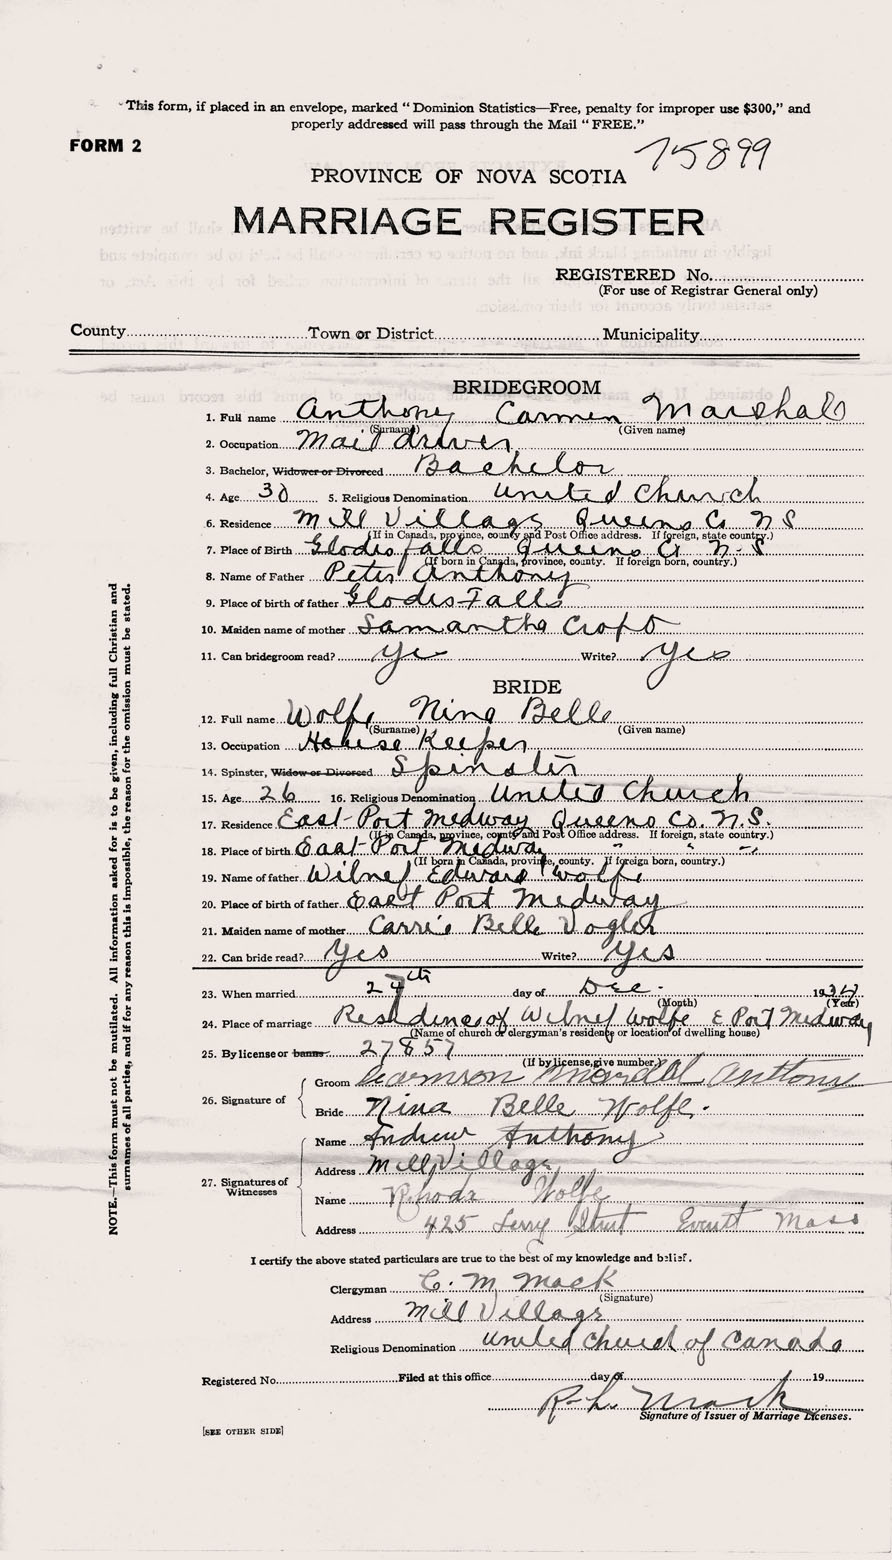 This form, if placed in an envelope, marked "Dominion Statistics—Free, penalty for improper use $300," and
properly addressed will pass through the Mail "FREE."
FORM 2
75899
PROVINCE OF NOVA SCOTIA
MARRIAGE REGISTER
REGISTERED No.
(For use of Registrar General only)
County Town or District Municipality
BRIDEGROOM
1. Full name Anthony Carmen Marshall
(Surname) (Given name)
2. Occupation Mail driver
3. Bachelor, Widower or Divorced Bachelor
4. Age 30 5. Religious Denomination United Church
6. Residence Mill Village Queens Co N S
(If in Canada, province, county and Post Office address. If foreign, state country.)
7. Place of Birth Glodis falls Queens Co N-S
(If born in Canada, province, county. If foreign born, country.)
8. Name of Father Peter Anthony
9. Place of birth of father Glodis Falls
10. Maiden name of mother Samantha Croft
11. Can bridegroom read? Yes Write? Yes
BRIDE
12. Full name Wolfe Nina Belle
(Surname) (Given name)
13. Occupation House Keeper
14. Spinster, Widow or Divorced Spinster
15. Age 26 16. Religious Denomination United Church
17. Residence East Port Medway Queens Co. N.S.
(If in Canada, province, county and Post Office address. If foreign, state country.)
18. Place of birth East Port Medway " " "
(If born in Canada, province, county. If foreign born, country.)
19. Name of father Wilnef Edward Wolfe
20. Place of birth of father East Port Medway
21. Maiden name of mother Carrie Belle Vogler
22. Can bride read? Yes Write? Yes
23. When married th day of Dec. 19
(Month) (Year)
24. Place of marriage Residence of Wilnef Wolfe E Port Medway
(Name of church or clergyman's residence or location of dwelling house)
25. By license or banns 27857
(If by license, give number.)
26. Signature of
Groom Anthony
Bride Nina Belle Wolfe.
27. Signatures of Witnesses
Name Andrew Anthony
Address Mill Village
Name Rhoda Wolfe
Address 425 Ferry Street Everett Mass
I certify the above stated particulars are true to the best of my knowledge and belief.
Clergyman C. M. Mack
(Signature)
Address Mill Village
Religious Denomination United Church of Canada
Registered No. Filed at this office day of 19
R. L. Mack
Signature of Issuer of Marriage Licenses.
[SEE OTHER SIDE]
NOTE.—This form must not be mutilated. All information asked for is to be given, including full Christian and
surnames of all parties, and if for any reason this is impossible, the reason for the omission must be stated.